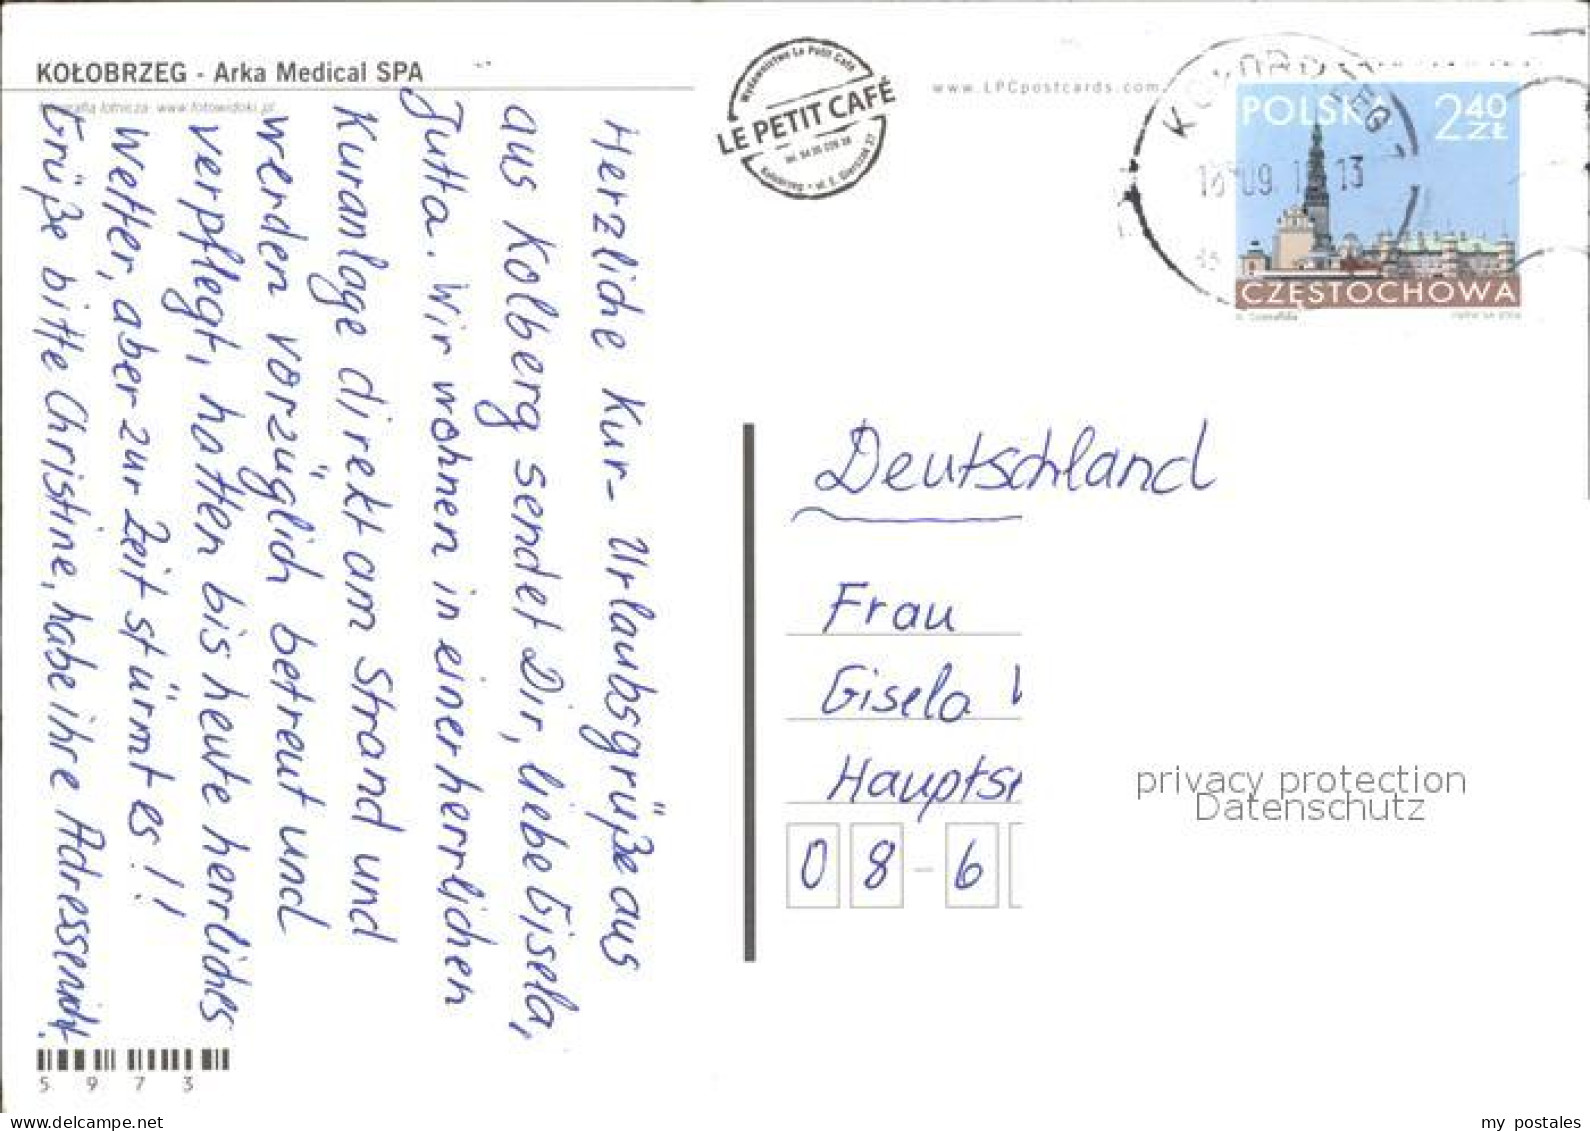 KOŁOBRZEG - Arka Medical SPA
fotografia lotnicza: www.fotowidoki.pl
Herzliche Kur- Urlaubsgrüße aus
aus Kolberg sendet Dir, liebe Gisela,
Jutta. Wir wohnen in einer herrlichen
Kuranlage direkt am Strand und
werden vorzüglich betreut und
verpflegt, hatten bis heute herrliches
Wetter, aber zur Zeit stürmt es!!
Grüße bitte Christine, habe ihre Adresse nicht.
5 9 7 3
Wydawnictwo Le Petit Café
LE PETIT CAFÉ
Kołobrzeg
www.LPCpostcards.com
KOŁOBRZEG
09. 13
POLSKA 2 40 ZŁ
CZĘSTOCHOWA
Deutschland
Frau
Gisela
Haupts
08-6
privacy protection
Datenschutz
my_postales